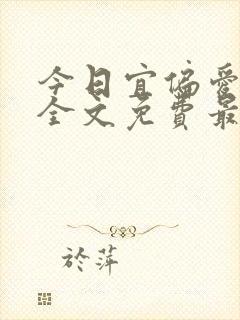 今日宜偏愛
全文免費最
於萍